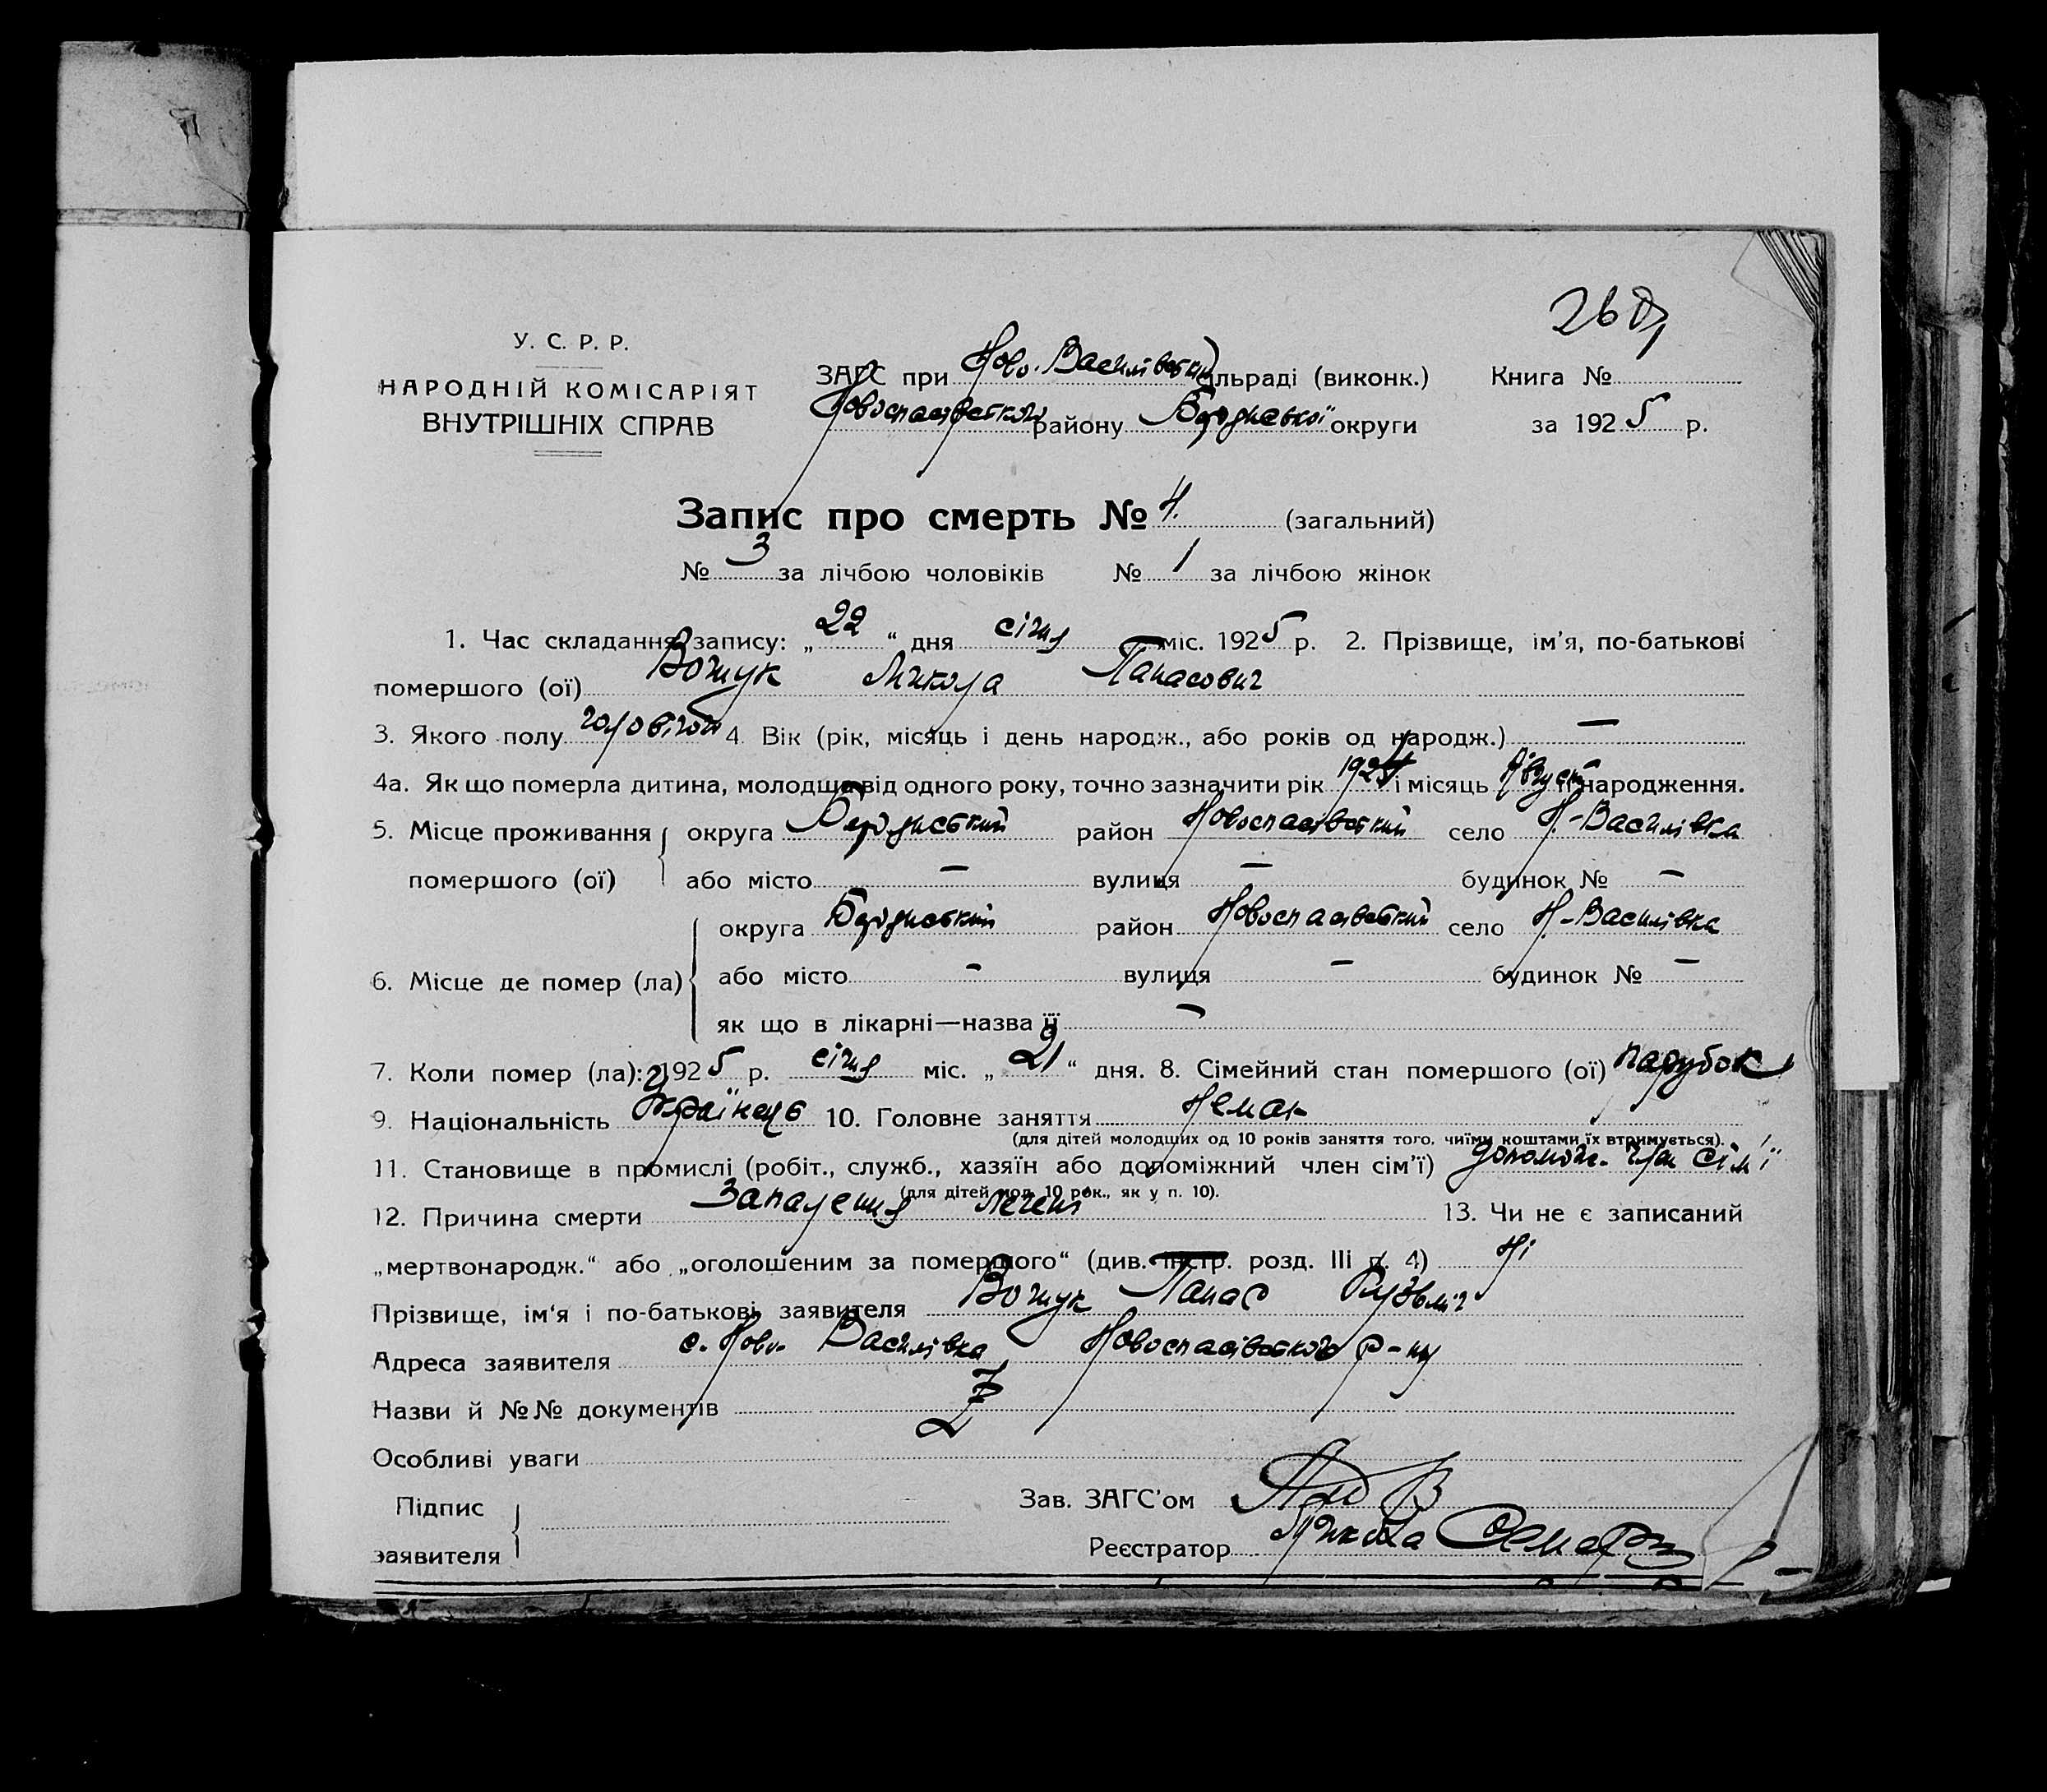 У. С. Р. Р.
НАРОДНІЙ КОМІСАРІЯТ
ВНУТРІШНІХ СПРАВ
ЗАГС при Ново-Василівській сільраді (виконк.) Книга №
Новоспасівського району Бердянської округи за 1925 р.
Запис про смерть № 4. (загальний)
№ 3 за лічбою чоловіків № 1 за лічбою жінок
1. Час складання запису: „22“ дня січня міс. 1925 р. 2. Прізвище, ім’я, по-батькові
помершого (ої) Микола Панасович
3. Якого полу чоловічой 4. Вік (рік, місяць і день народж., або років од народж.) —
4а. Як що померла дитина, молодша від одного року, точно зазначити рік 1924 і місяць Август її народження.
5. Місце проживання помершого (ої) округа Бердянський район Новоспасівський село Н-Василівка
або місто — вулиця — будинок № —
6. Місце де помер (ла) округа Бердянський район Новоспасівський село Н-Василівка
або місто — вулиця — будинок № —
як що в лікарні—назва її —
7. Коли помер (ла): 1925 р. січня міс. „21“ дня. 8. Сімейний стан помершого (ої) парубок
9. Національність Українець 10. Головне заняття Немає
(для дітей молодших од 10 років заняття того, чиїми коштами їх втримується).
11. Становище в промислі (робіт., служб., хазяїн або допоміжний член сім’ї) допоміж. член сім’ї
(для дітей мол. 10 рок., як у п. 10).
12. Причина смерти Запалення легень 13. Чи не є записаний
„мертвонародж.“ або „оголошеним за помершого“ (див. інстр. розд. III п. 4) Ні
Прізвище, ім‘я і по-батькові заявителя Панас
Адреса заявителя с. Ново-Василівка Новоспасівського р-ну
Назви й №№ документів
Особливі уваги
Підпис заявителя
Зав. ЗАГС’ом
Реєстратор Микита